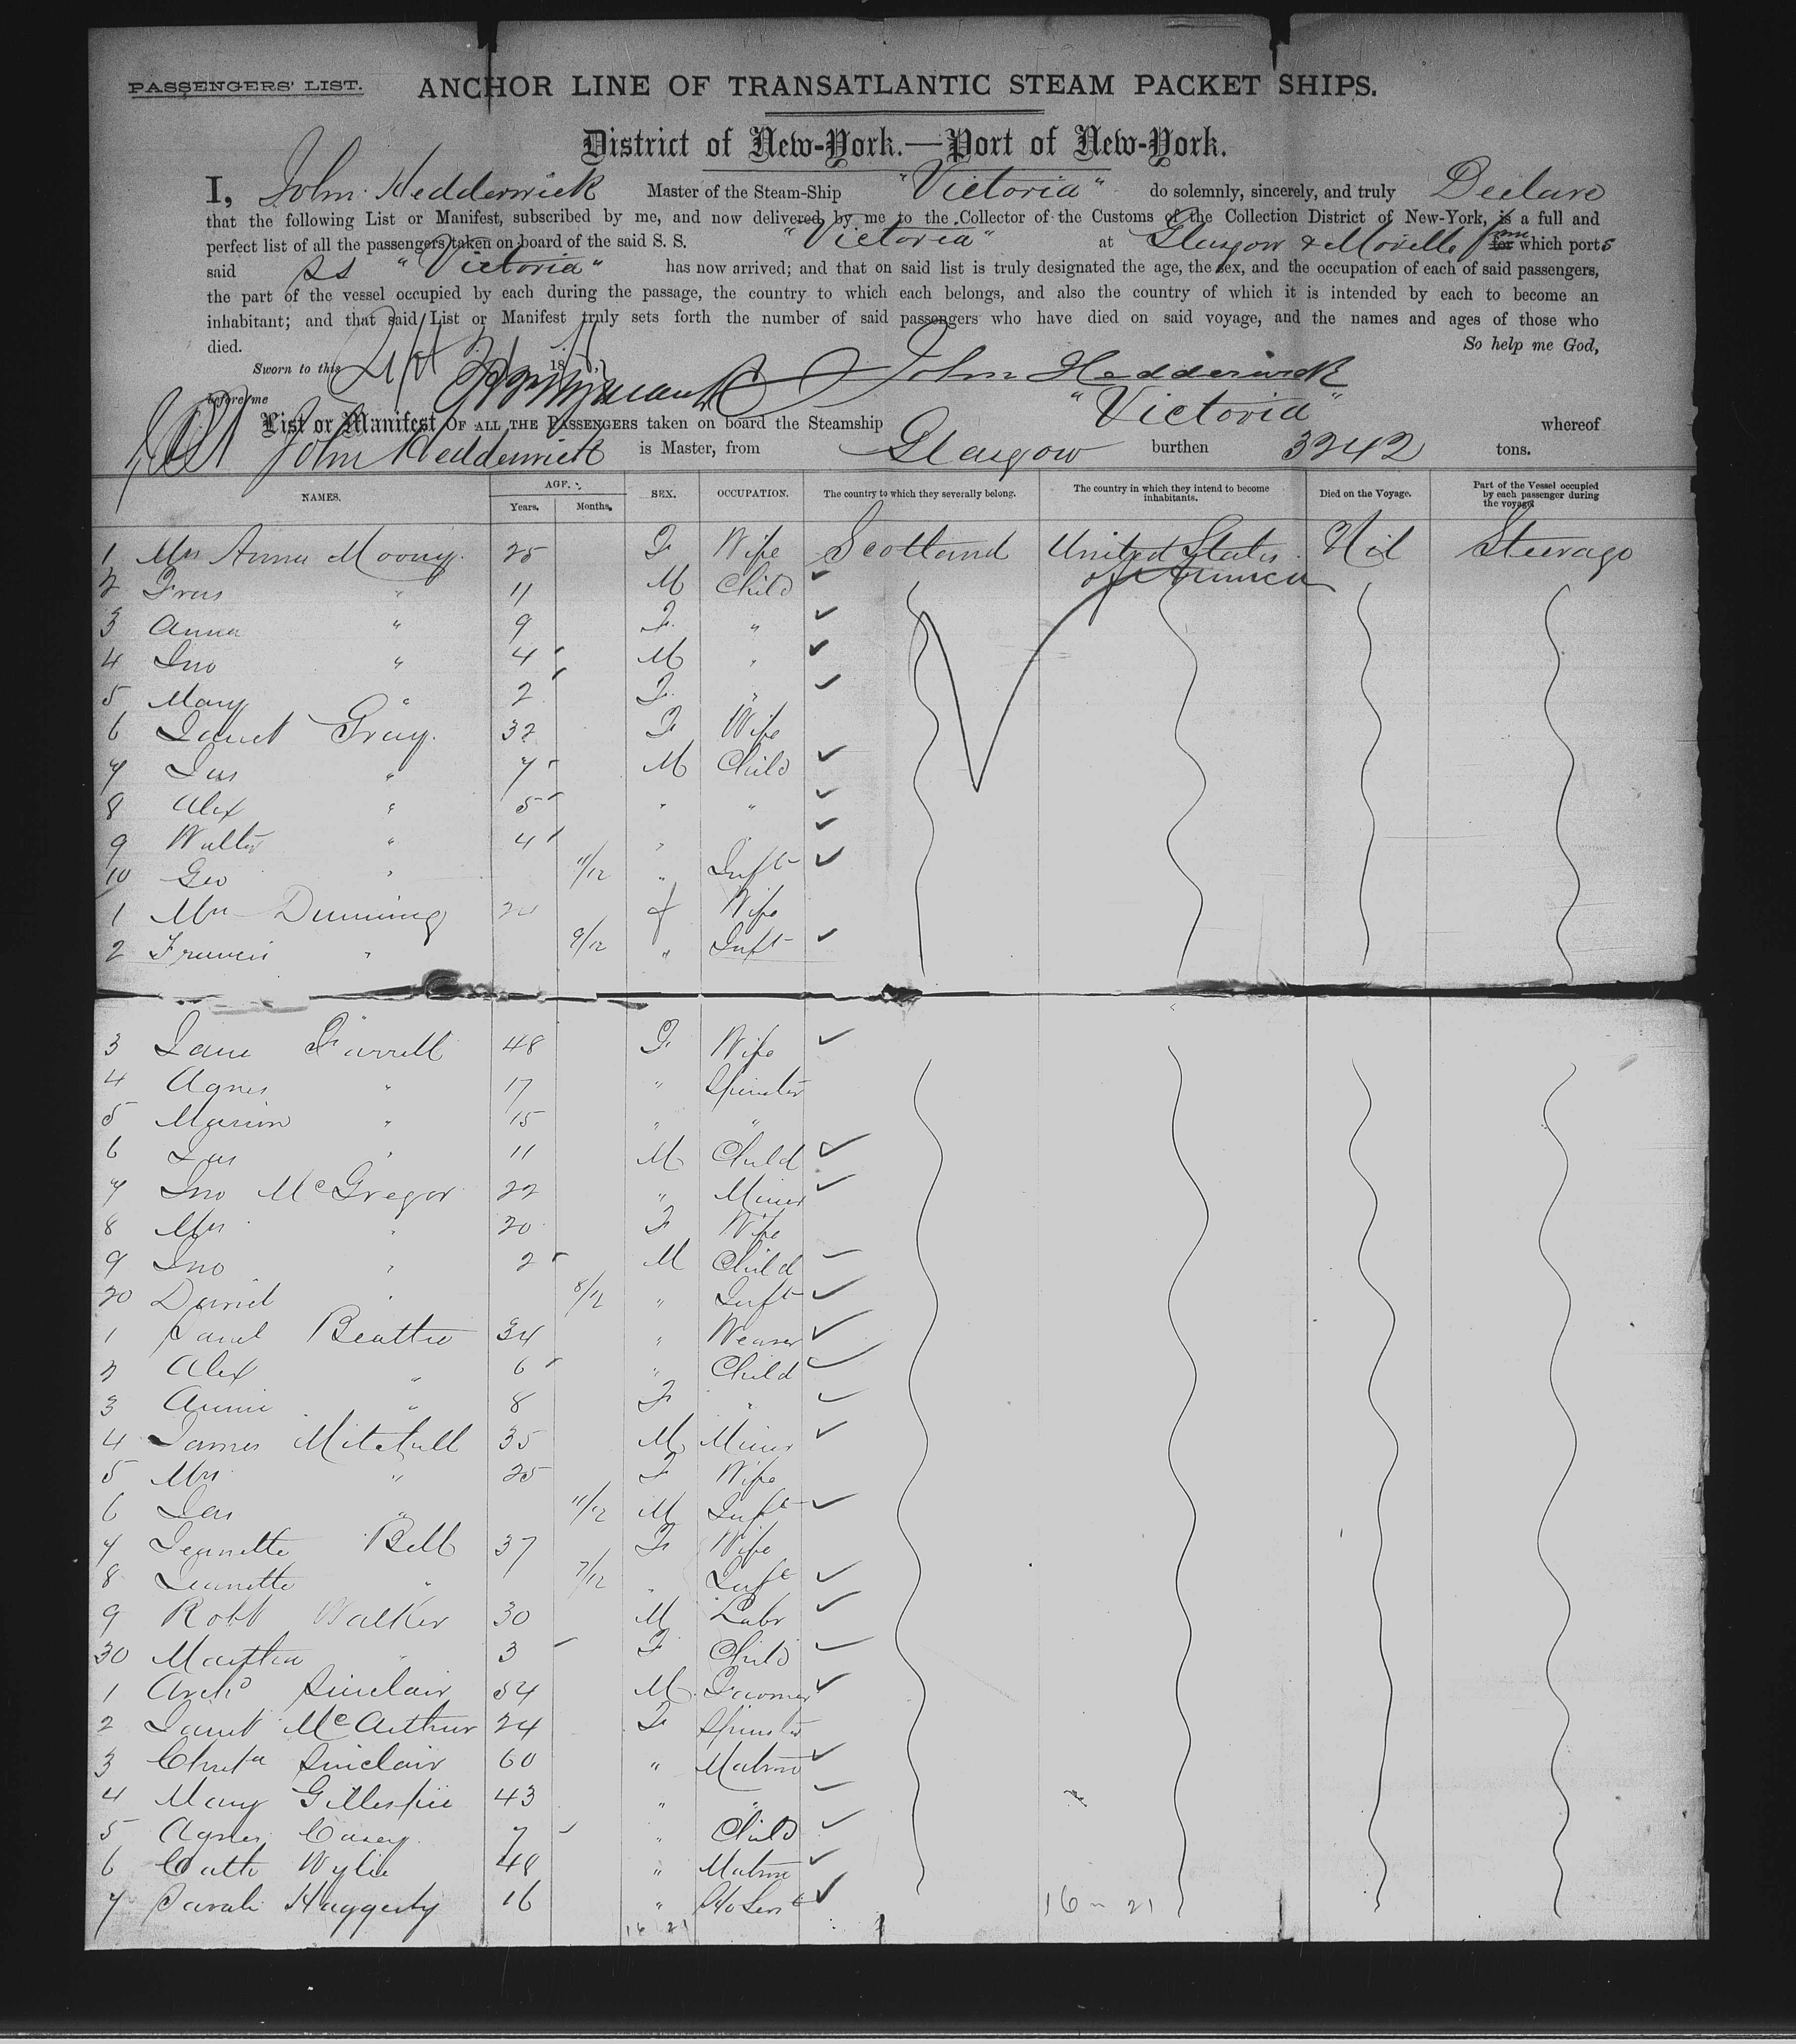 PASSENGERS' LIST. ANCHOR LINE OF TRANSATLANTIC STEAM PACKET SHIPS.
District of New-York.—Port of New-York.
I, John Hedderwick Master of the Steam-Ship "Victoria" do solemnly, sincerely, and truly Declare
that the following List or Manifest, subscribed by me, and now delivered by me to the Collector of the Customs of the Collection District of New-York, is a full and
perfect list of all the passengers taken on board of the said S. S. "Victoria" at Glasgow & Moville from which ports
said SS "Victoria" has now arrived; and that on said list is truly designated the age, the sex, and the occupation of each of said passengers,
the part of the vessel occupied by each during the passage, the country to which each belongs, and also the country of which it is intended by each to become an
inhabitant; and that said List or Manifest truly sets forth the number of said passengers who have died on said voyage, and the names and ages of those who
died. So help me God,
Sworn to this 21st 18 John Hedderwick
before me
List or Manifest OF ALL THE PASSENGERS taken on board the Steamship "Victoria" whereof
John Hedderwick is Master, from Glasgow burthen 3242 tons.
NAMES. AGE. Years. Months. SEX. OCCUPATION. The country to which they severally belong. The country in which they intend to become inhabitants. Died on the Voyage. Part of the Vessel occupied by each passenger during the voyage
1 Mrs Anna Moony 25 F Wife Scotland United States of America Nil Steerage
2 Fras " 11 M Child
3 Anna " 9 F "
4 Jno " 4 M "
5 Mary " 2 F "
6 Janet Gray 32 F Wife
7 Jas " 7 M Child
8 Alex " 5 " "
9 Walter " 4 "
10 Geo " 11/12 " Inft
1 Mrs Dunning 24 f Wife
2 Francis " 9/12 " Inft
3 Jane Farrell 48 F Wife
4 Agnes " 17 " Spinster
5 Marion " 15 " "
6 Jas " 11 M Child
7 Jno McGregor 22 " Miner
8 Mrs " 20 F Wife
9 Jno " 2 M Child
20 David " 8/12 " Inft
1 Paul Beattie 34 " Weaver
2 Alex " 6 " Child
3 Annie " 8 F "
4 James Mitchell 35 M Miner
5 Mrs " 25 F Wife
6 Jas " 11/12 M Inft
7 Jeanette Bell 37 F Wife
8 Jeanette " 7/12 " Inft
9 Robt Walker 30 M Labr
30 Martha " 3 F Child
1 Archd Sinclair 54 M Farmer
2 Janet McArthur 24 F Spinster
3 Christa Sinclair 60 " Matron
4 Mary Gillespie 43 " "
5 Agnes Casey 7 " Child
6 Cath Wylie 48 " Matron
7 Sarah Haggerty 16 " Ho Servt
16 21 16 21